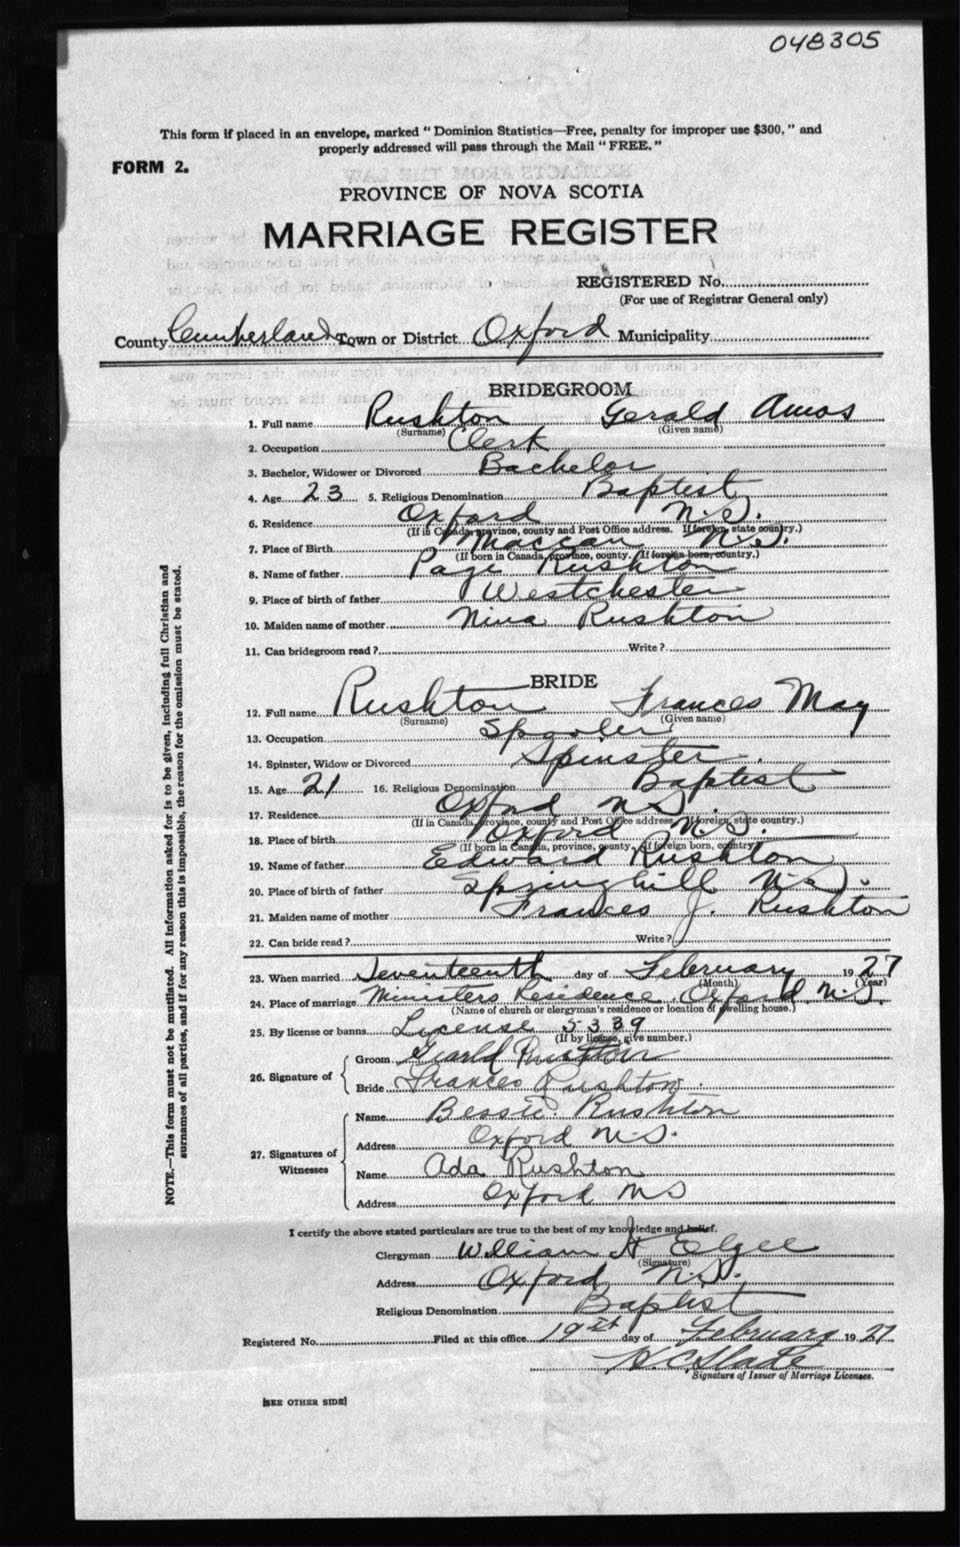 048305
This form if placed in an envelope, marked "Dominion Statistics—Free, penalty for improper use $300," and
properly addressed will pass through the Mail "FREE."
FORM 2.
PROVINCE OF NOVA SCOTIA
MARRIAGE REGISTER
REGISTERED No.
(For use of Registrar General only)
County Cumberland Town or District Oxford Municipality
BRIDEGROOM
1. Full name Rushton Gerald Amos
(Surname) (Given name)
2. Occupation Clerk
3. Bachelor, Widower or Divorced Bachelor
4. Age 23 5. Religious Denomination Baptist
6. Residence Oxford N.S.
(If in Canada, province, county and Post Office address. If foreign, state country.)
7. Place of Birth Maccan N.S.
(If born in Canada, province, county. If foreign born, country.)
8. Name of father Page Rushton
9. Place of birth of father Westchester
10. Maiden name of mother Nina Rushton
11. Can bridegroom read? Write?
BRIDE
12. Full name Rushton Frances May
(Surname) (Given name)
13. Occupation Spooler
14. Spinster, Widow or Divorced Spinster
15. Age 21 16. Religious Denomination Baptist
17. Residence Oxford N.S.
(If in Canada, province, county and Post Office address. If foreign, state country.)
18. Place of birth Oxford N.S.
(If born in Canada, province, county. If foreign born, country)
19. Name of father Edward Rushton
20. Place of birth of father Springhill N.S.
21. Maiden name of mother Frances J. Rushton
22. Can bride read? Write?
23. When married Seventeenth day of February 1927
(Month) (Year)
24. Place of marriage Ministers Residence Oxford N.S.
(Name of church or clergyman's residence or location of dwelling house.)
25. By license or banns License 5339
(If by license, give number.)
26. Signature of
Groom Gerald Rushton
Bride Frances Rushton
27. Signatures of Witnesses
Name Bessie Rushton
Address Oxford N.S.
Name Ada Rushton
Address Oxford N S
I certify the above stated particulars are true to the best of my knowledge and belief.
Clergyman William H Elgee
(Signature)
Address Oxford N.S.
Religious Denomination Baptist
Registered No. Filed at this office 19st day of February 1927
H. C. Slade
Signature of Issuer of Marriage Licenses.
[SEE OTHER SIDE]
NOTE.—This form must not be mutilated. All information asked for is to be given, including full Christian and
surnames of all parties, and if for any reason this is impossible, the reason for the omission must be stated.